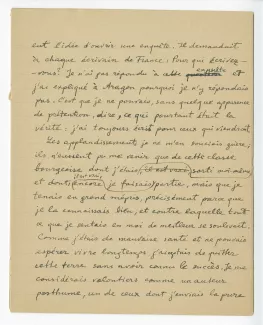 eut l'idée d'ouvrir une enquête. Il demandait
à chaque écrivain de France : Pourquoi écrivez-
vous? Je n'ai pas répondu à cette enquête et
j'ai expliqué à Aragon pourquoi je n'y répondais
pas. C'est que je ne pouvais, sans quelque apparence
de prétention, dire, ce qui pourtant était la
vérité : j'ai toujours écrit pour ceux qui viendront.
Les applaudissements, je ne m'en souciais guère,
ils n'eussent pu me venir que de cette classe
bourgeoise dont j'étais sorti moi-même
et dont j'encore je faisais partie, mais que je
tenais en grand mépris, précisément parce que
je la connaissais bien, et contre laquelle tout
ce que je sentais en moi de meilleur se soulevait.
Comme j'étais de mauvaise santé et ne pouvais
espérer vivre longtemps j'acceptais de quitter
cette terre sans avoir connu le succès. Je me
considérais volontiers comme un auteur
posthume, un de ceux dont j'enviais la pure